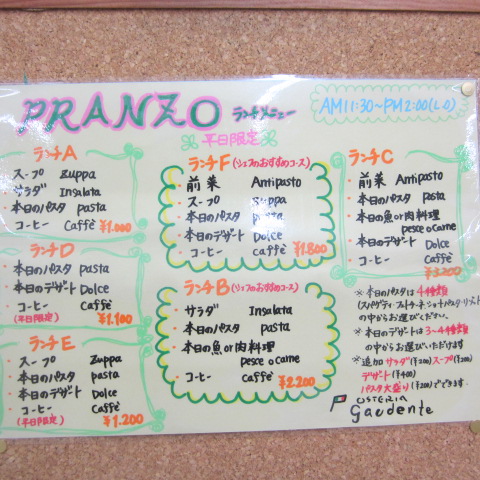 PRANZO ランチメニュー
平日限定
AM11:30~PM2:00(L.O)
ランチA
スープ Zuppa
サラダ Insalata
本日のパスタ pasta
コーヒー Caffè
¥1.000
ランチD
本日のパスタ pasta
本日のデザート Dolce
コーヒー Caffè
(平日限定) ¥1.100
ランチE
スープ Zuppa
本日のパスタ pasta
本日のデザート Dolce
コーヒー Caffè
(平日限定) ¥1.200
ランチF (シェフのおすすめコース)
前菜 Antipasto
スープ Zuppa
本日のパスタ pasta
本日のデザート Dolce
コーヒー Caffè
¥1.800
ランチB (シェフのおすすめコース)
サラダ Insalata
本日のパスタ pasta
本日の魚or肉料理
pesce o carne
コーヒー Caffè
¥2.200
ランチC
前菜 Antipasto
本日のパスタ pasta
本日の魚or肉料理
pesce o carne
本日のデザート Dolce
コーヒー Caffè
¥3.200
※本日のパスタは4種類
の中からお選びください。
※本日のデザートは3~4種類
の中からお選びいただけます
※追加 サラダ(¥200)スープ(¥200)
デザート(¥400)
パスタ大盛り(¥200)できます。
OSTERIA
Gaudente